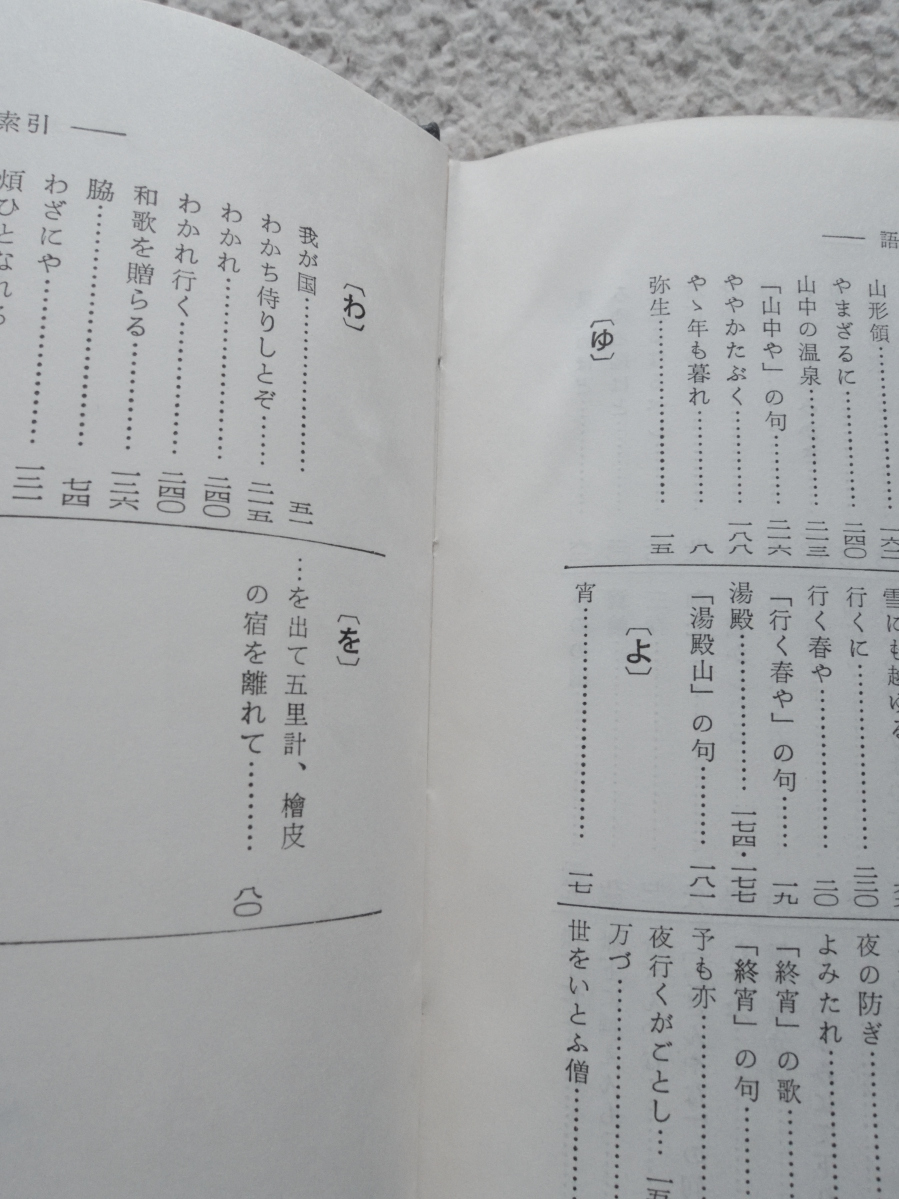 語
山形領……………一六二
やまざるに…………二四〇
山中の温泉…………二一三
「山中や」の句……二一六
ややかたぶく………一八八
やゝ年も暮れ…………八
弥生…………………一五
〔ゆ〕
雪にも越ゆる
行くに………………二三〇
行く春や……………二〇
「行く春や」の句……一九
湯殿…………一七四・一七七
「湯殿山」の句………一八一
〔よ〕
宵……………………一七
夜の防ぎ
よみたれ
「終宵」の歌
「終宵」の句
予も亦
夜行くがごとし…
万づ
世をいとふ僧
索引
〔わ〕
我が国………………五一
わかち侍りしとぞ……二一五
わかれ………………二四〇
わかれ行く…………二四〇
和歌を贈らる………一三六
脇……………………七四
わざにや……………一三一
煩ひとなれる
〔を〕
…を出て五里計、檜皮
の宿を離れて…………八〇